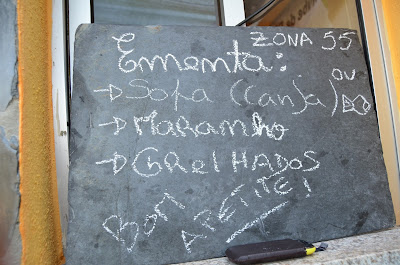 ZONA 55
Ementa:
→ Sopa (Canja) ou
→ Maranho
→ GRELHADOS
BOM APETITE!